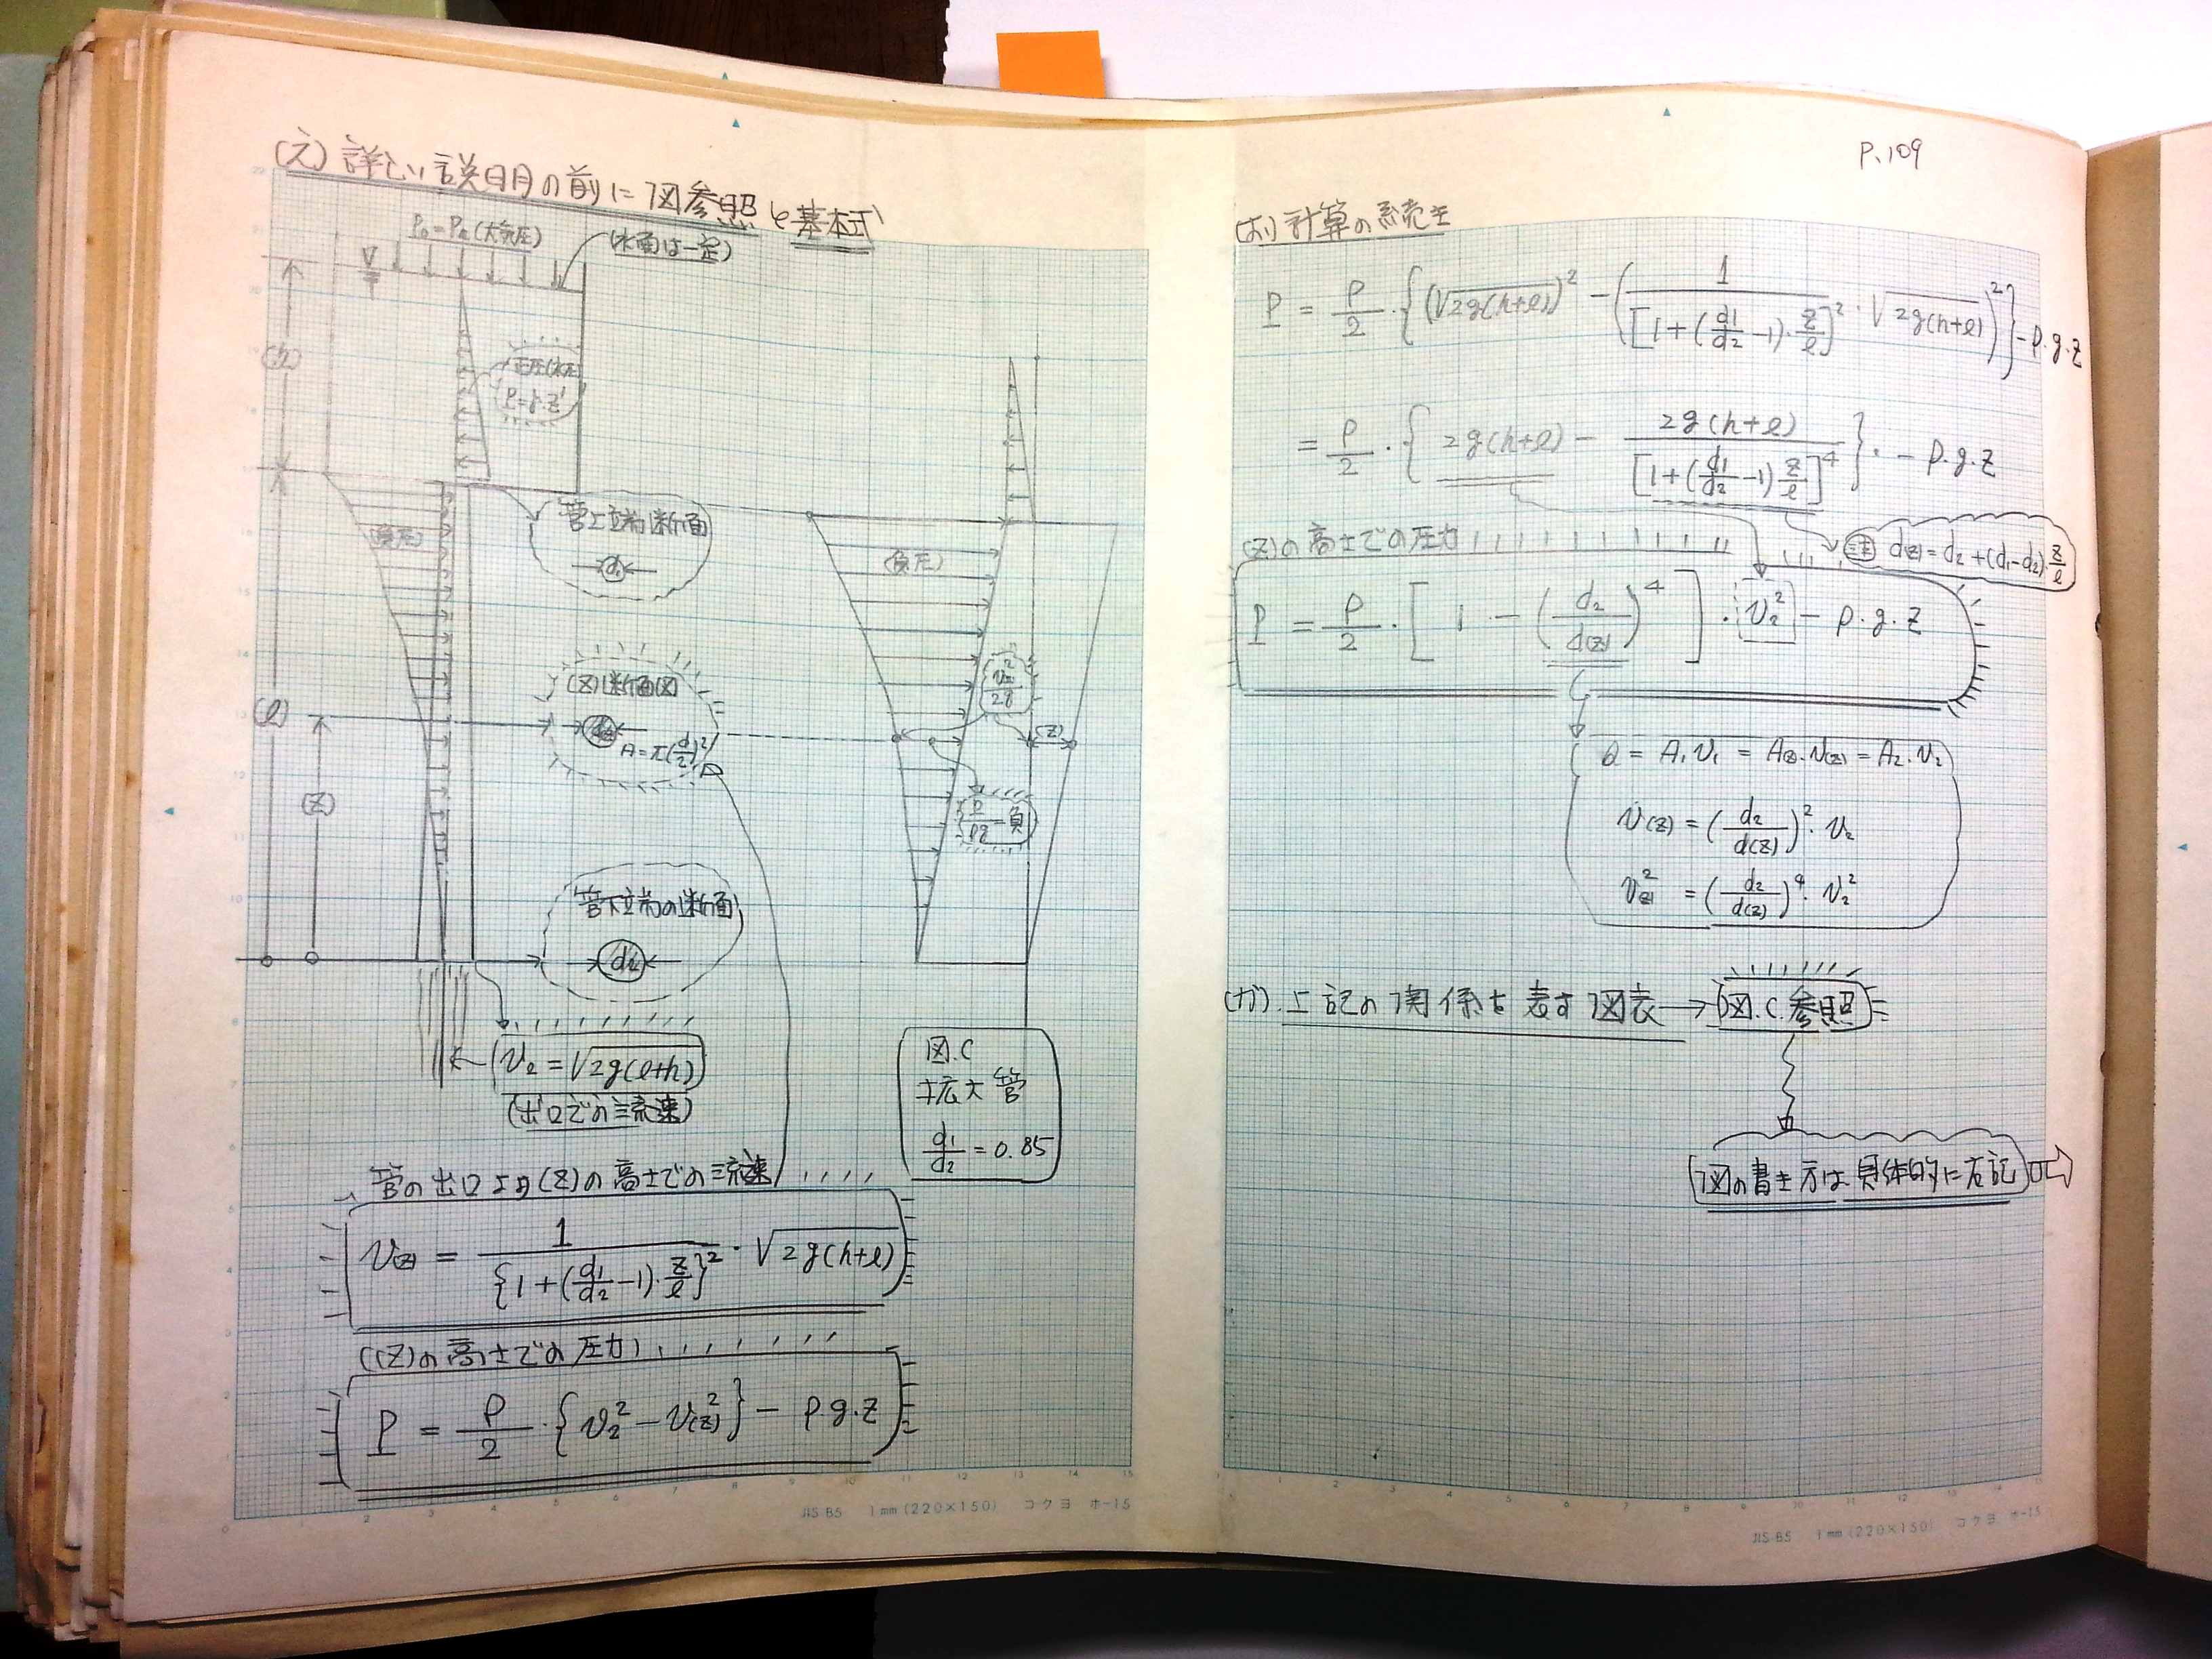 (え) 詳しい説明の前に図参照と基本式
P₀=Pa (大気圧)
(水面は一定)
(h)
正圧(水圧)
P=γ·z'
管上端断面
d₁
(負圧)
(負圧)
(z)断面図
A=π(d/2)²
(l)
(z)
v(z)²/2g
(z)
P/ρg=負
管下端の断面
d₂
v₂=√2g(l+h)
(出口での流速)
図.C
拡大管
d₁/d₂=0.85
管の出口より(z)の高さでの流速
v(z) = 1/{1+(d₁/d₂-1)·z/l}² · √2g(h+l)
(z)の高さでの圧力
P = ρ/2 · {v₂² - v(z)²} - ρ.g.z
JIS B5 1mm (220×150) コクヨ ホ-15
P.109
(お) 計算の続き
P = ρ/2 · {(√2g(h+l))² - (1/[1+(d₁/d₂-1)·z/l]² · √2g(h+l))²} - ρ.g.z
= ρ/2 · {2g(h+l) - 2g(h+l)/[1+(d₁/d₂-1)z/l]⁴} · - ρ.g.z
(z)の高さでの圧力
注 d(z)=d₂+(d₁-d₂)·z/l
P = ρ/2 · [1 - (d₂/d(z))⁴] · v₂² - ρ.g.z
Q = A₁v₁ = A(z).v(z) = A₂.v₂
v(z) = (d₂/d(z))²· v₂
v(z)² = (d₂/d(z))⁴· v₂²
(か). 上記の関係を表す図表→図.C.参照
図の書き方は具体的に右記⇨
JIS B5 1mm (220×150) コクヨ ホ-15